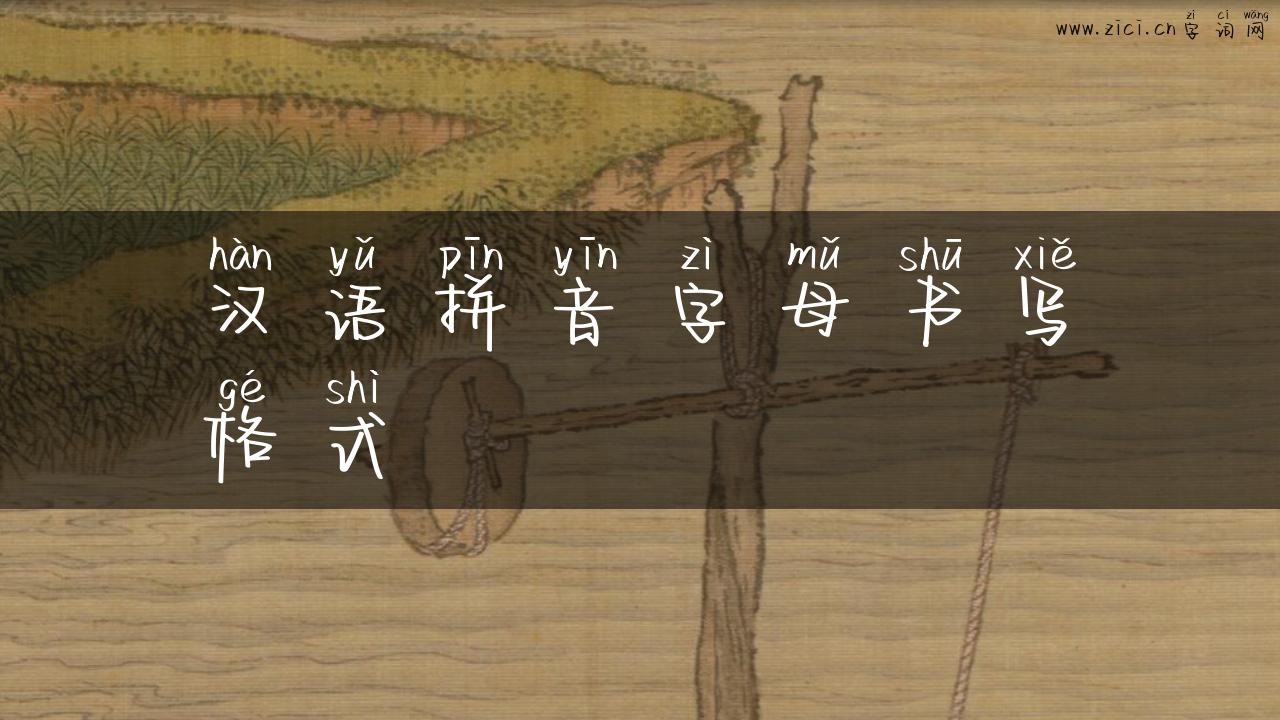 zì cí wǎng
www.zici.cn 字词网
hàn yǔ pīn yīn zì mǔ shū xiě
汉语拼音字母书写
gé shì
格式